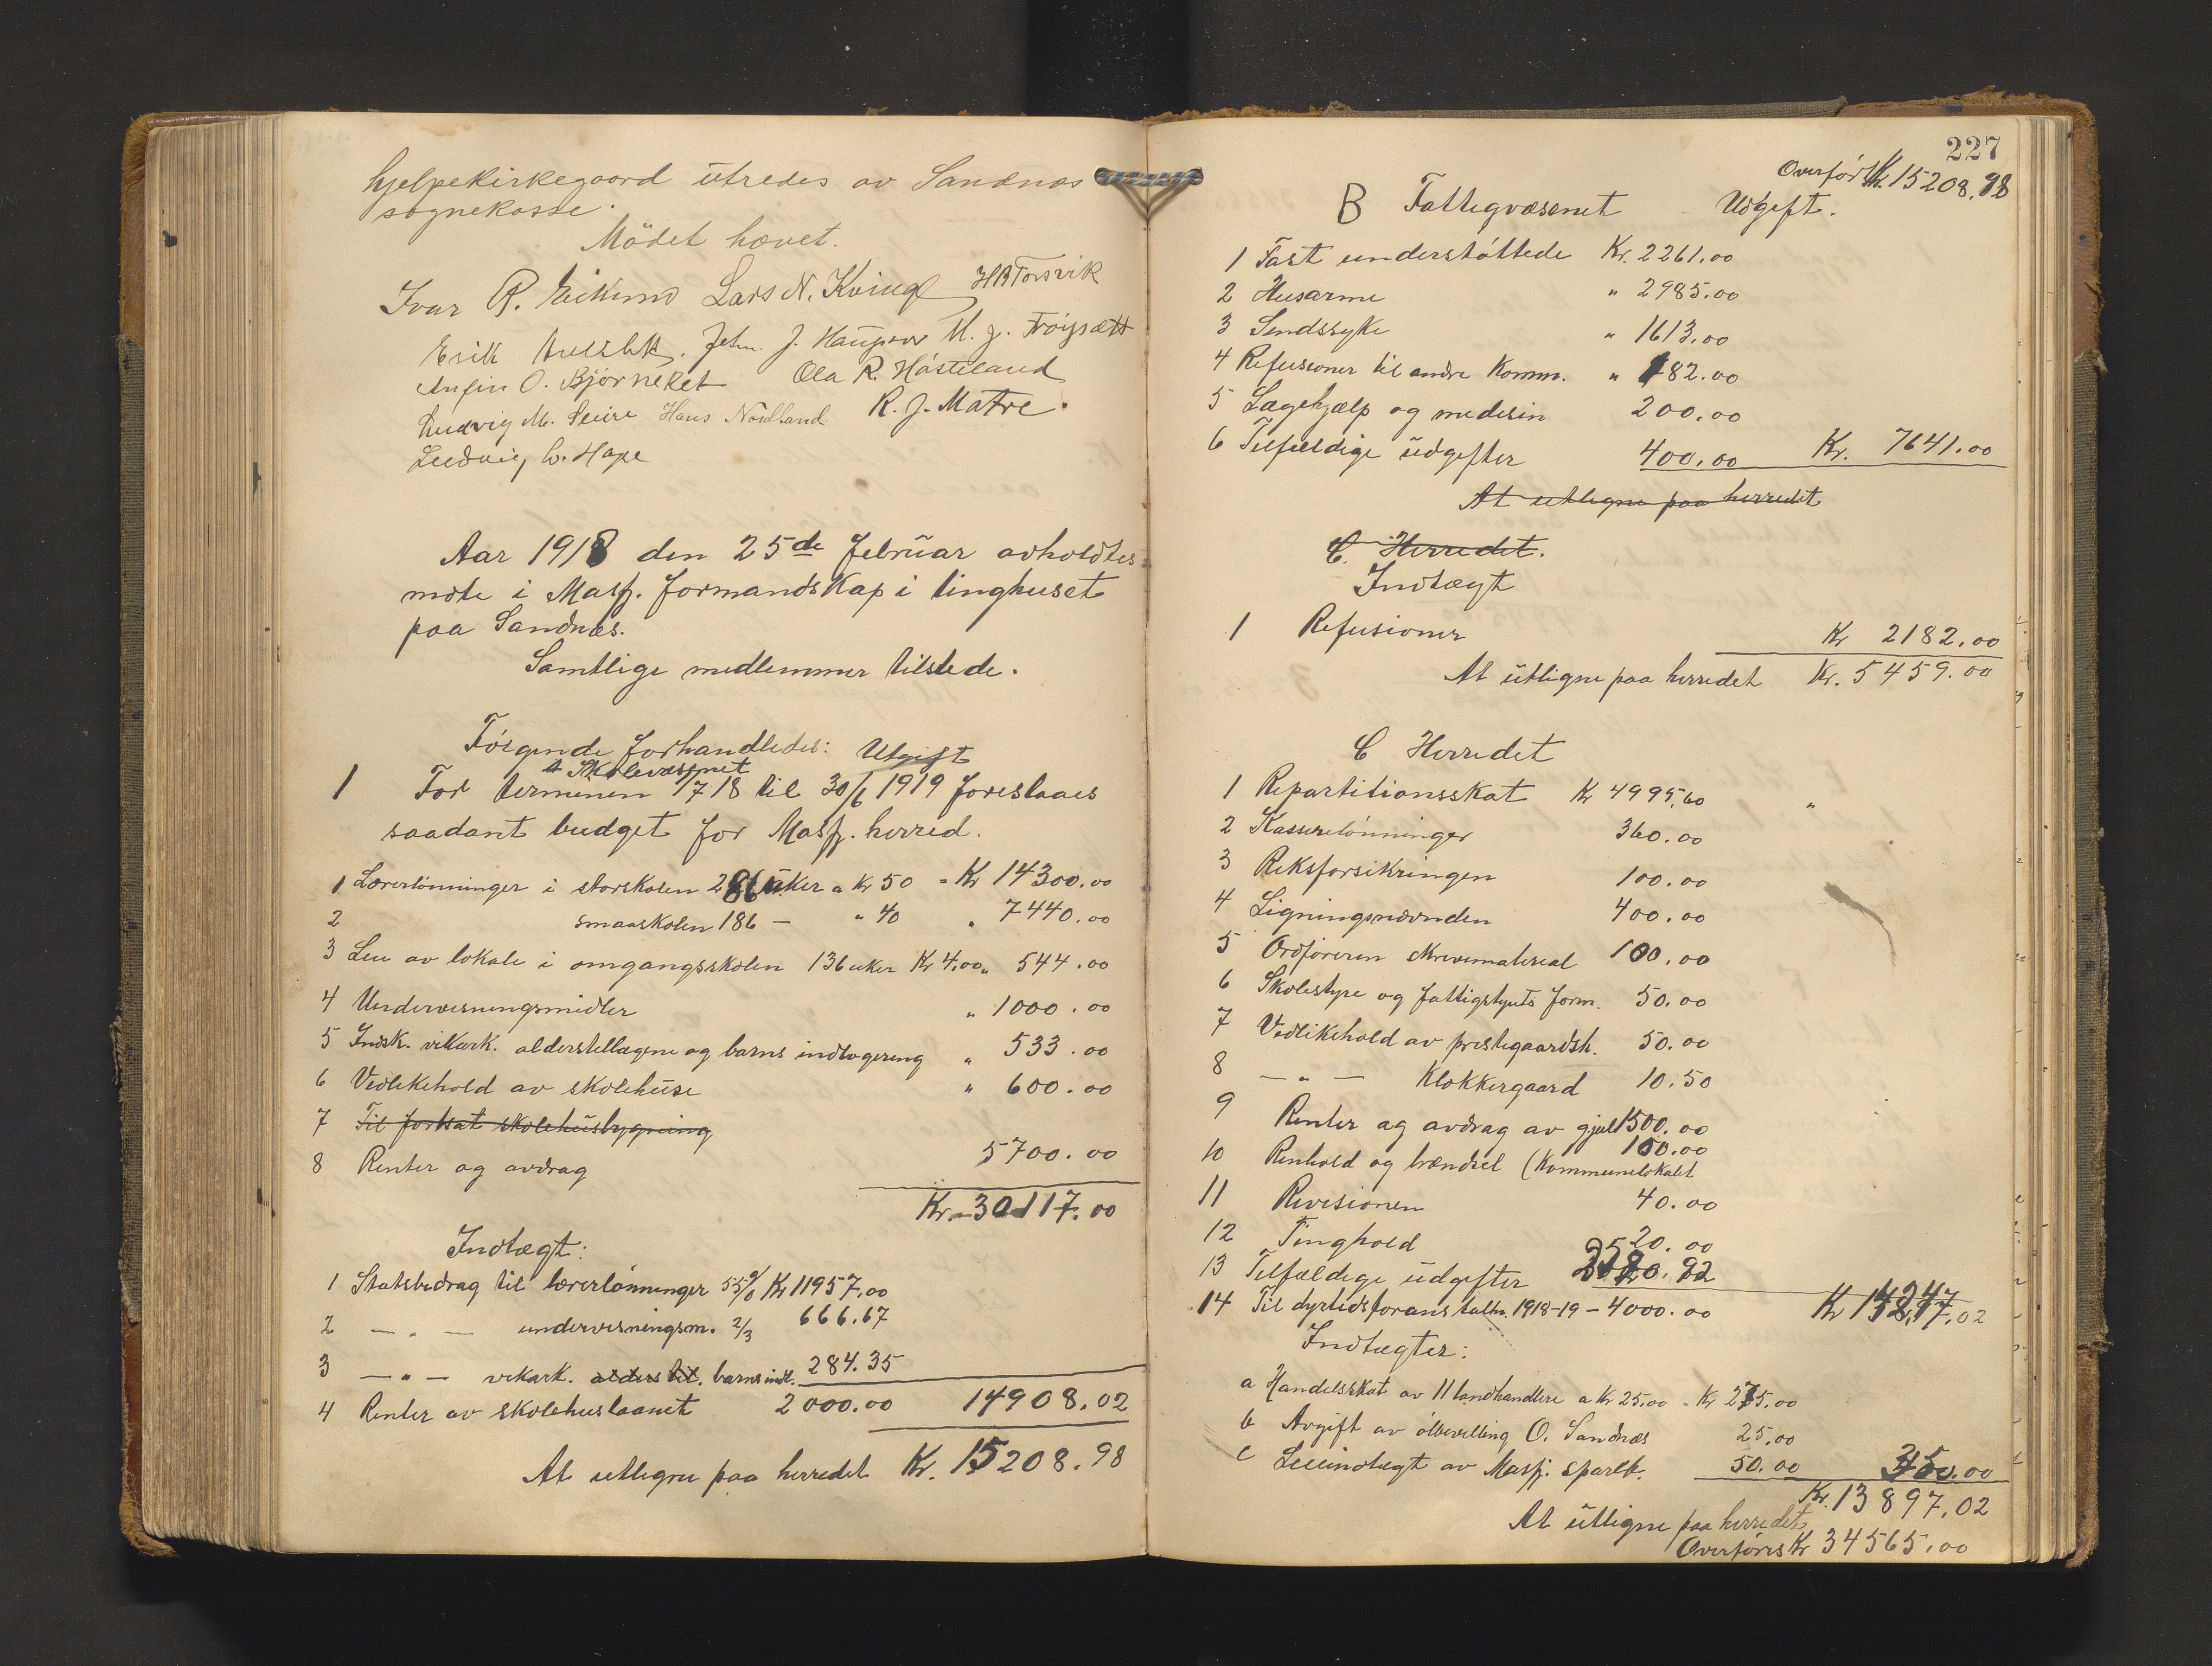 hjelpekirkegaard utredes av Sandnæs
sognekasse.
Mödet hævet.
Ivar R. Eikemo Lars N. Kvinge HB Torsvik
Erik John. J. Haugsvær M. J. Tröysæth
Anfin O. Björneket Ola R. Hösteland
Ludvig M. Seire Hans Nordland R. J. Matre.
Ludvig L. Hope
Aar 1918 den 25de februar avholdtes
möte i Masfj. formandskap i tinghuset
paa Sandnæs.
Samtlige medlemmer tilstede.
Fölgende forhandledes: Utgift
A Skolevæsenet
1 For terminen 1/7 18 til 30/6 1919 foreslaaes
saadant budget for Masfj. herred.
1 Lærerlönninger i storskolen 286 uker a Kr 50 = Kr 14300.00
2 smaaskolen 186 — " 40 " 7440.00
3 Leie av lokale i omgangsskolen 136 uker Kr 4,00 " 544.00
4 Undervisningsmidler " 1000.00
5 Indsk. vikark. alderstillægene og barns indlogering " 533.00
6 Vedlikehold av skolehuse " 600.00
7 Til fortsat skolehusbygning
8 Renter og avdrag 5700.00
Kr. 30117.00
Indtægt:
1 Statsbidrag til lærerlönninger 55% Kr 11957,00
2 — " — undervisningsm. 2/3 666.67
3 — " — vikark. alders til. barns indl. 284.35
4 Renter av skolehuslaanet 2000.00 14908.02
At utligne paa herredet Kr. 15208.98
227
Overfört Kr. 15208.98
B Fattigvæsenet Udgift.
1 Fast understöttede Kr. 2261.00
2 Husarme " 2985.00
3 Sindssyke " 1613.00
4 Refusioner til andre Komm. " 182.00
5 Lægehjælp og medisin 200.00
6 Tilfældige udgifter 400.00 Kr. 7641.00
At utligne paa herredet
C. Herredet.
Indtægt
1 Refusioner Kr 2182.00
At utligne paa herredet Kr. 5459.00
C Herredet
1 Repartitionsskat Kr 4995,60 "
2 Kassererlönninger 360.00
3 Riksforsikringen 100.00
4 Ligningsnævnden 400.00
5 Ordföreren skrivematerial 100.00
6 Skolestyre og fattigstyrets form. 50.00
7 Vedlikehold av prestegaardsh. 50.00
8 — " — Klokkergaard 10.50
9 Renter og avdrag av gjæl 1500.00
10 Renhold og brændsel (Kommunelokalet 100.00
11 Revisionen 40.00
12 Tinghold 20.00
13 Tilfældige udgifter
14 Til dyrtidsforanstaltn. 1918-19 - 4000.00 Kr 14247.02
Indtægter:
a Handelsskat av 11 landhandlere a Kr 25.00 = Kr 275.00
b Avgift av ölbevilling O. Sandnæs 25,00
c Leieindtægt av Masfj. sparebk. 50.00 350.00
Kr. 13897,02
At utligne paa herredet
Overföres Kr 34565.00